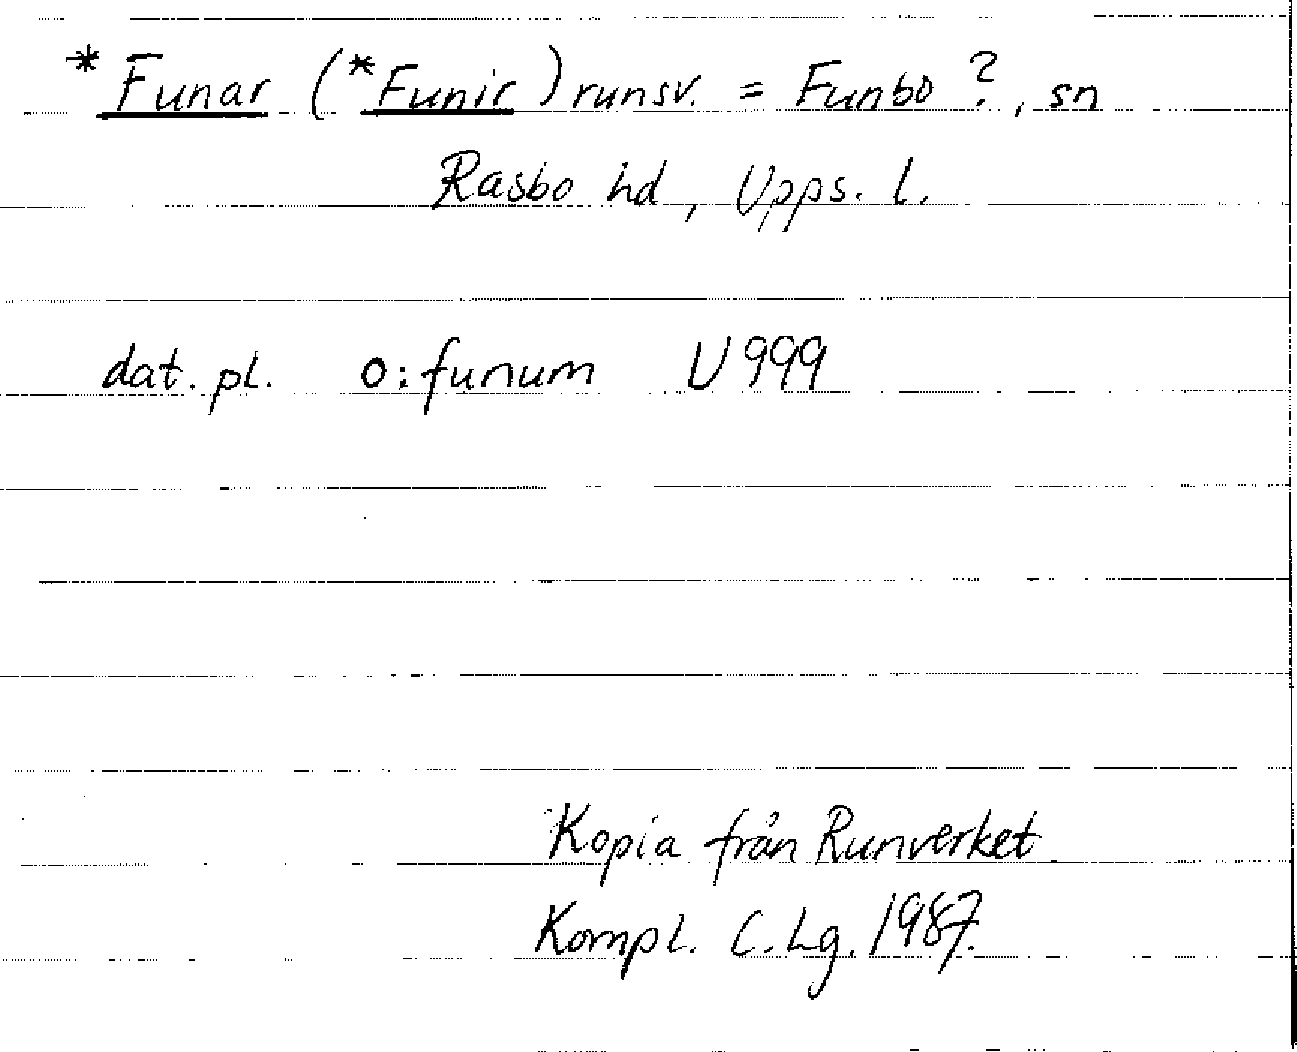 *Funar (*Funir) runsv. = Funbo?, sn
Rasbo hd, Upps. l.
dat. pl. o:funum U 999
Kopia från Runverket
Kompl. C. Lg. 1987.